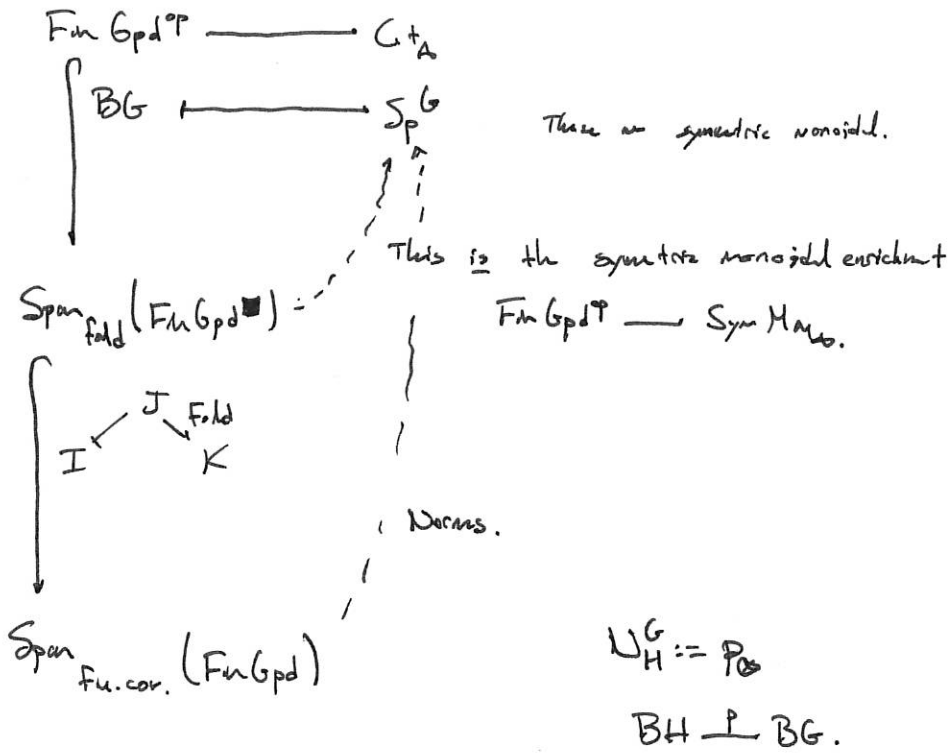 Fin Gpd^op —— Cat_∞
BG ⟼ Sp^G
These are symmetric monoidal.
This is the symmetric monoidal enrichment
Span_fold (FinGpd)
FinGpd^op —— SymMon_∞.
J Fold
I K
Norms.
Span_fin.cov. (FinGpd)
N_H^G := p_⊗
BH —p— BG.